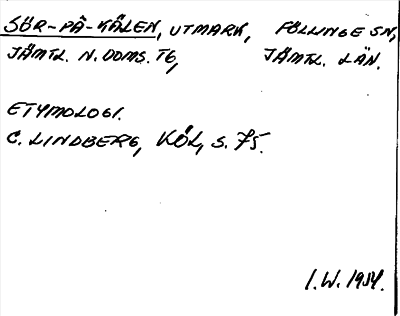 SÖR-PÅ-KÅLEN, UTMARK, FÖLLINGE SN,
JÄMTL. N. DOMS. TG, JÄMTL. LÄN.
ETYMOLOGI.
C. LINDBERG, KÖL, S. 75.
I.W. 1954.